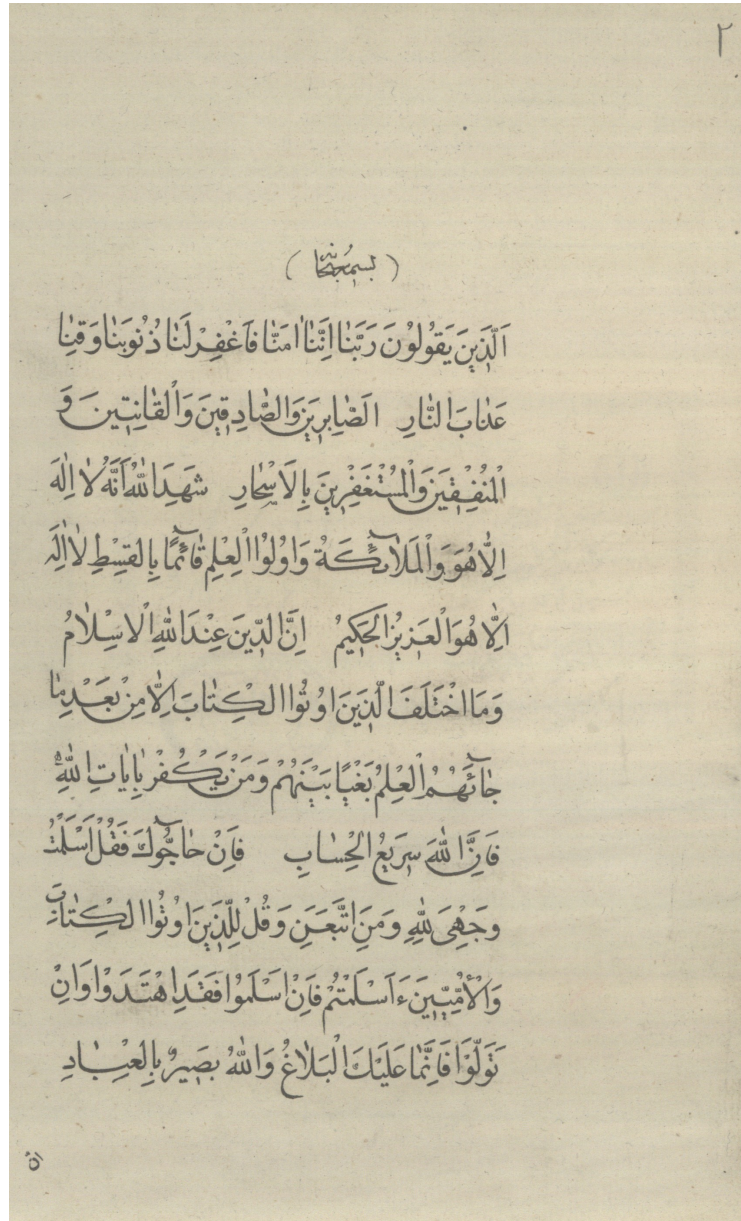 ٢
(بسمه سبحانه)
اَلَّذِينَ يَقُولُونَ رَبَّنَا اِنَّنَا اٰمَنَّا فَاغْفِرْ لَنَا ذُنُوبَنَا وَقِنَا
عَذَابَ النَّارِ الصَّابِرِينَ وَالصَّادِقِينَ وَالْقَانِتِينَ وَ
الْمُنْفِقِينَ وَالْمُسْتَغْفِرِينَ بِالْاَسْحَارِ شَهِدَ اللهُ اَنَّهُ لَا اِلٰهَ
اِلَّا هُوَ وَالْمَلَآئِكَةُ وَاُولُوا الْعِلْمِ قَآئِمًا بِالْقِسْطِ لَا اِلٰهَ
اِلَّا هُوَ الْعَزِيزُ الْحَكِيمُ اِنَّ الدِّينَ عِنْدَ اللهِ الْاِسْلَامُ
وَمَا اخْتَلَفَ الَّذِينَ اُوتُوا الْكِتَابَ اِلَّا مِنْ بَعْدِ مَا
جَآئَهُمُ الْعِلْمُ بَغْيًا بَيْنَهُمْ وَمَنْ يَكْفُرْ بِاٰيَاتِ اللهِ
فَاِنَّ اللهَ سَرِيعُ الْحِسَابِ فَاِنْ حَآجُّوكَ فَقُلْ اَسْلَمْتُ
وَجْهِيَ لِلّٰهِ وَمَنِ اتَّبَعَنِ وَقُلْ لِلَّذِينَ اُوتُوا الْكِتَابَ
وَالْاُمِّيِّينَ ءَاَسْلَمْتُمْ فَاِنْ اَسْلَمُوا فَقَدِ اهْتَدَوْا وَاِنْ
تَوَلَّوْا فَاِنَّمَا عَلَيْكَ الْبَلَاغُ وَاللهُ بَصِيرٌ بِالْعِبَادِ